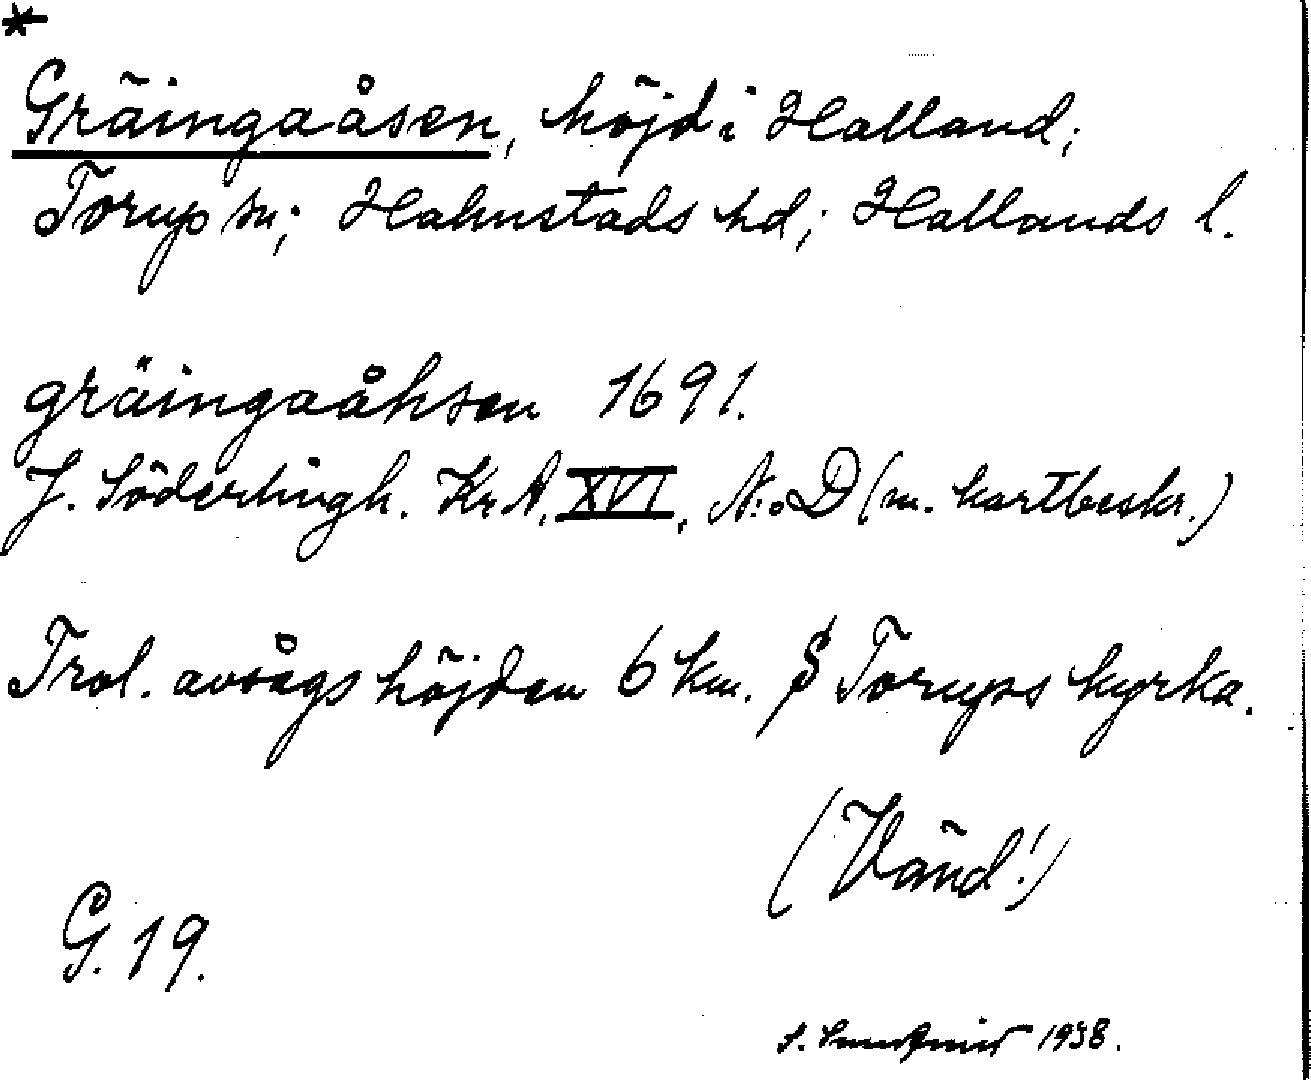 *
Gräingaåsen, höjd i Halland;
Torup sn; Halmstads hd; Hallands l.
gräingaåhsen 1691.
J. Söderlingh. Kr. A. XVI, N:o D (m. kartbeskr.)
Trol. avsågs höjden 6 km. S Torups kyrka.
(Vänd!)
G. 19.
1938.